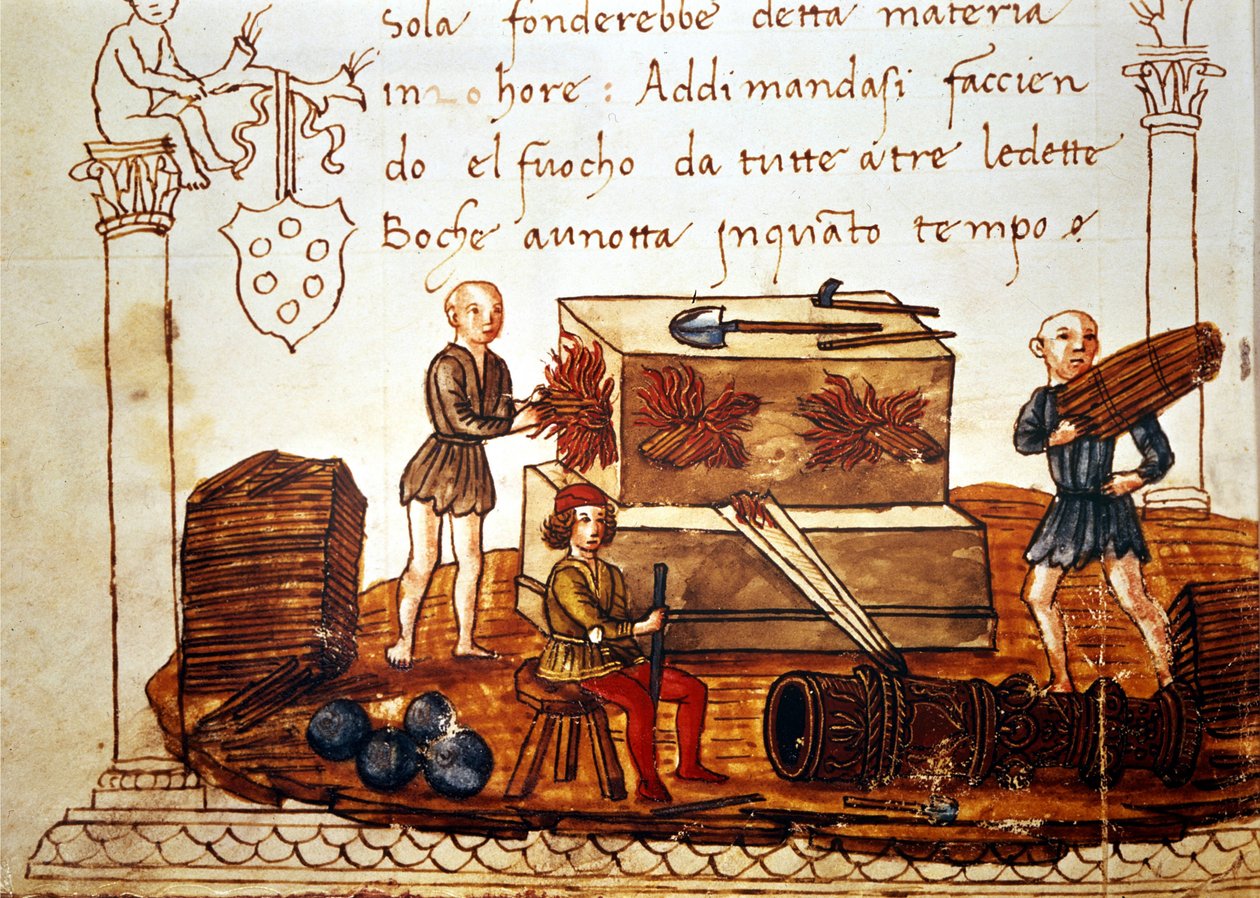 Sola fonderebbe detta materia
in 20 hore : Addimandasi faccien
do el fuocho da tutte a tre ledette
Boche aunotta inquãto tempo e